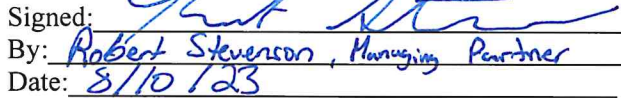 Signed:
By: Robert Stevenson, Managing Partner
Date: 8/10/23